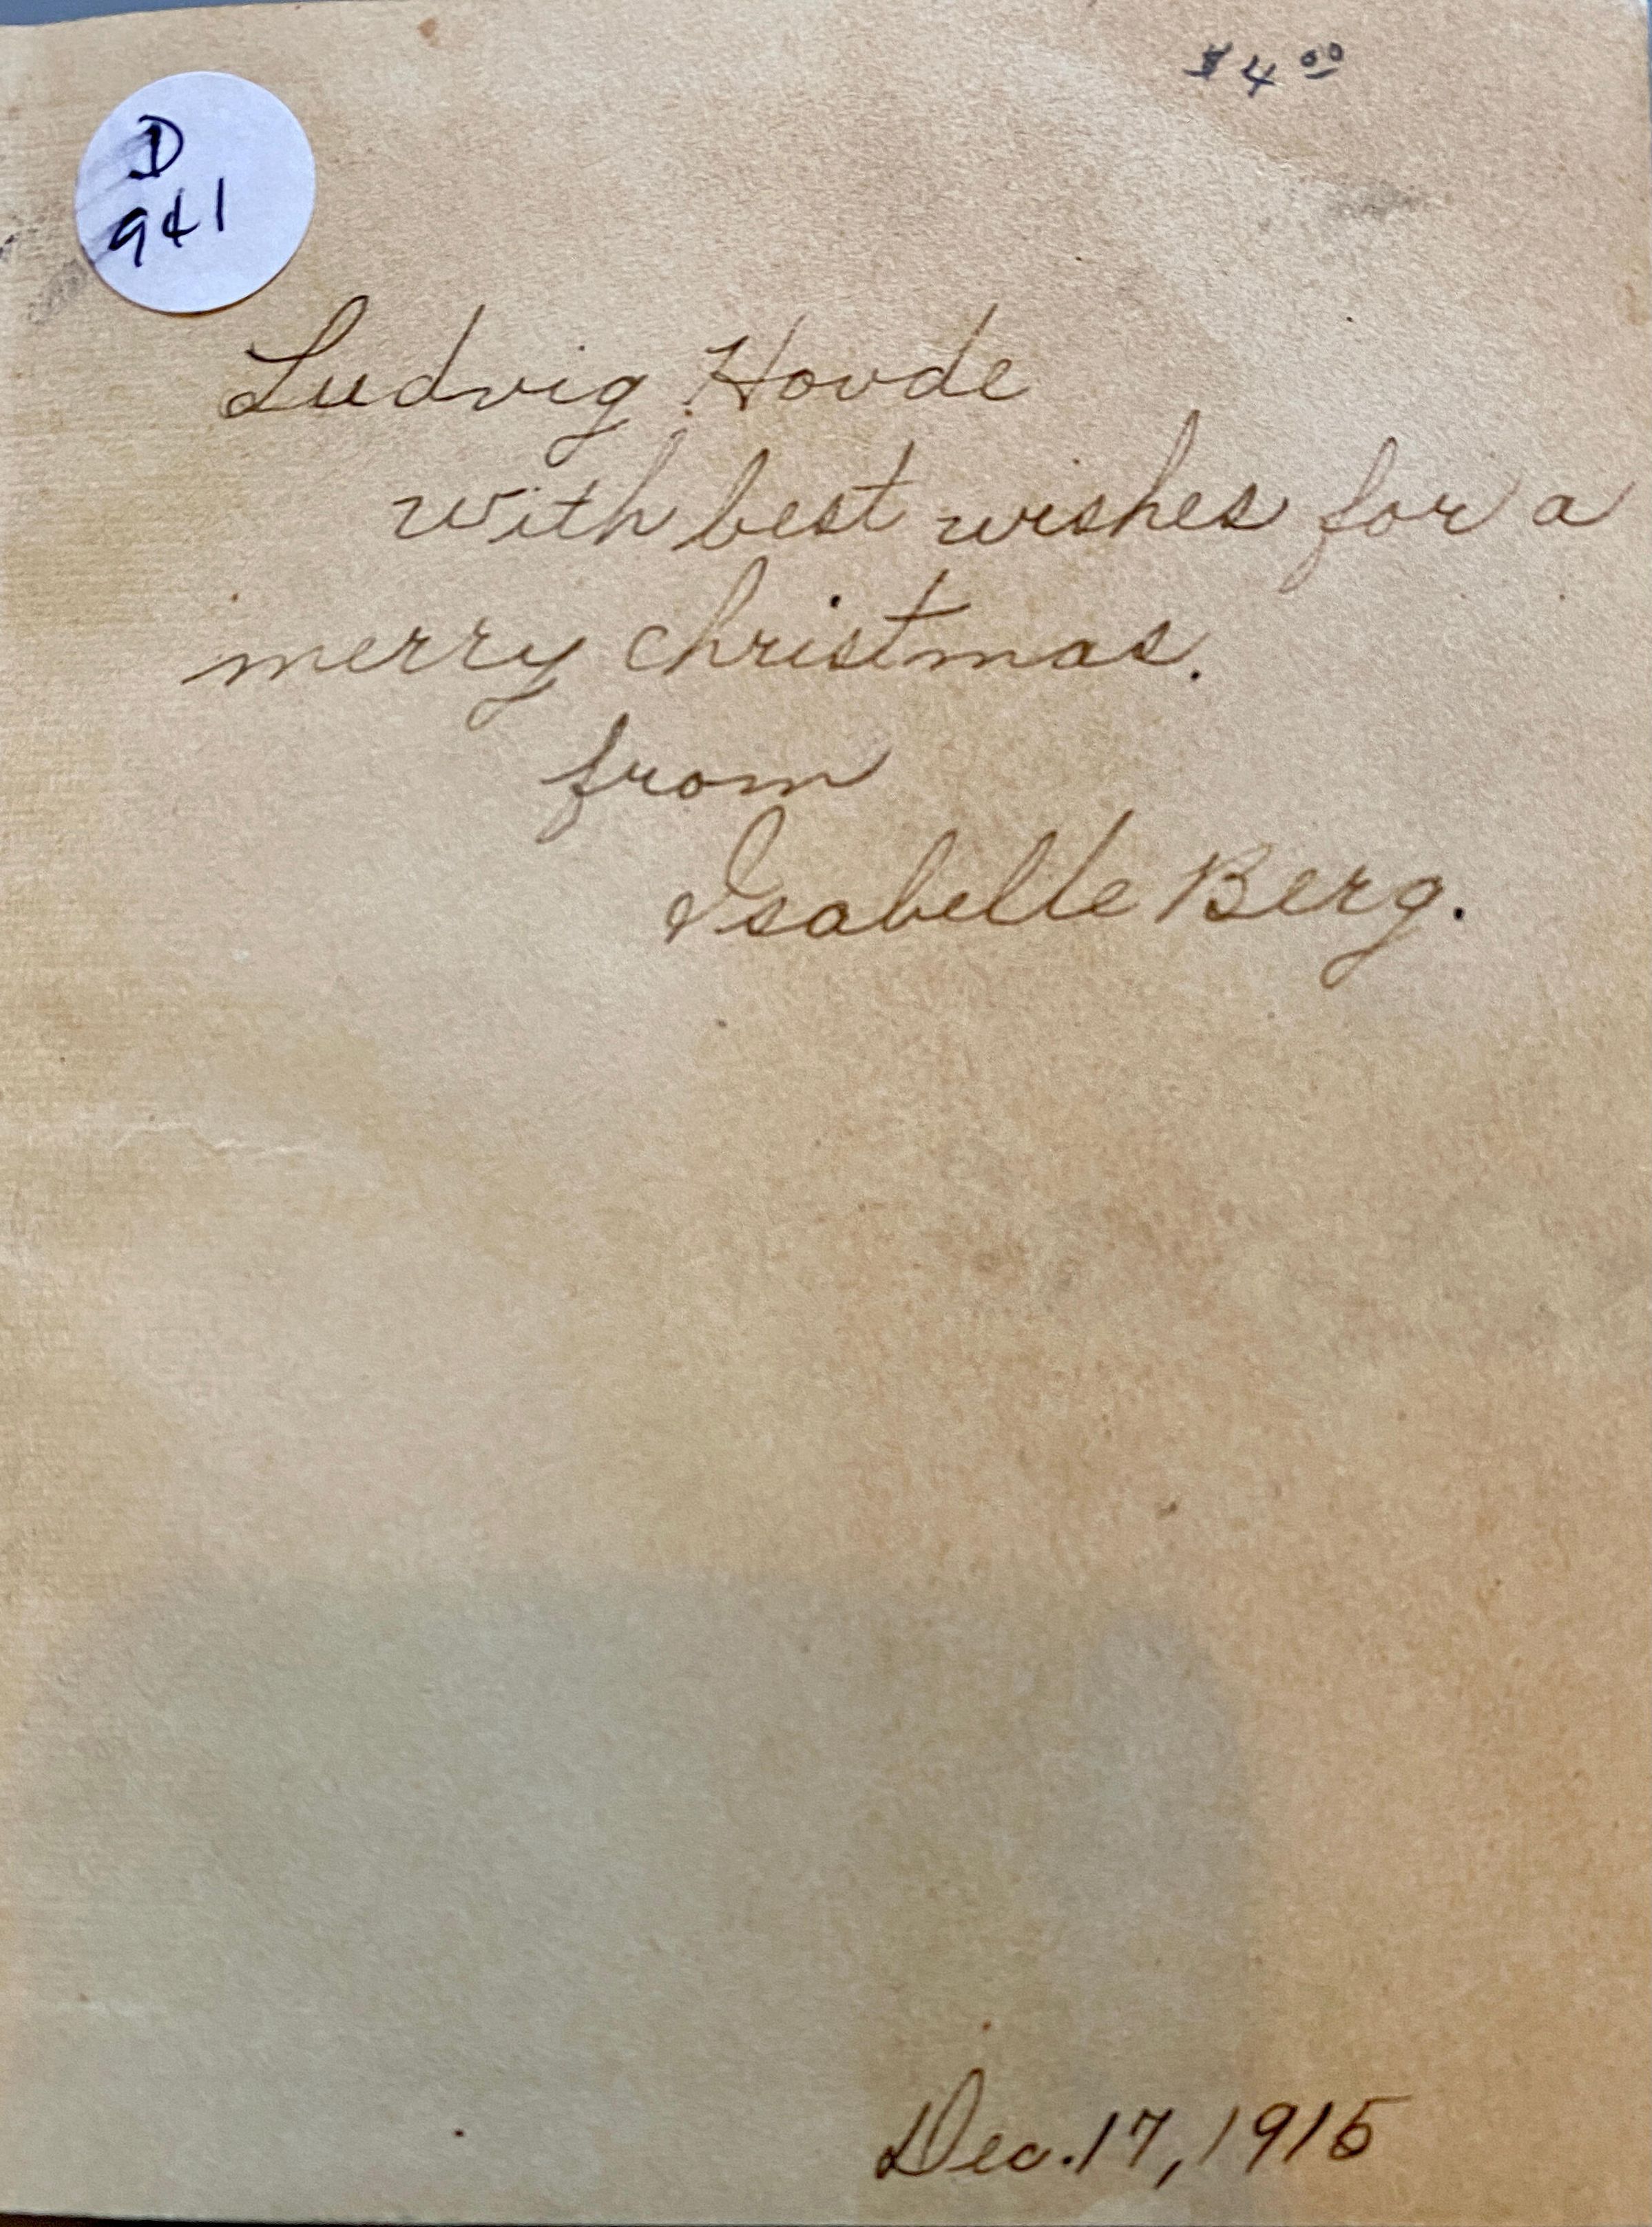 $4 00
D
941
Ludvig Hovde
with best wishes for a
merry christmas.
from
Isabelle Berg.
Dec. 17, 1915